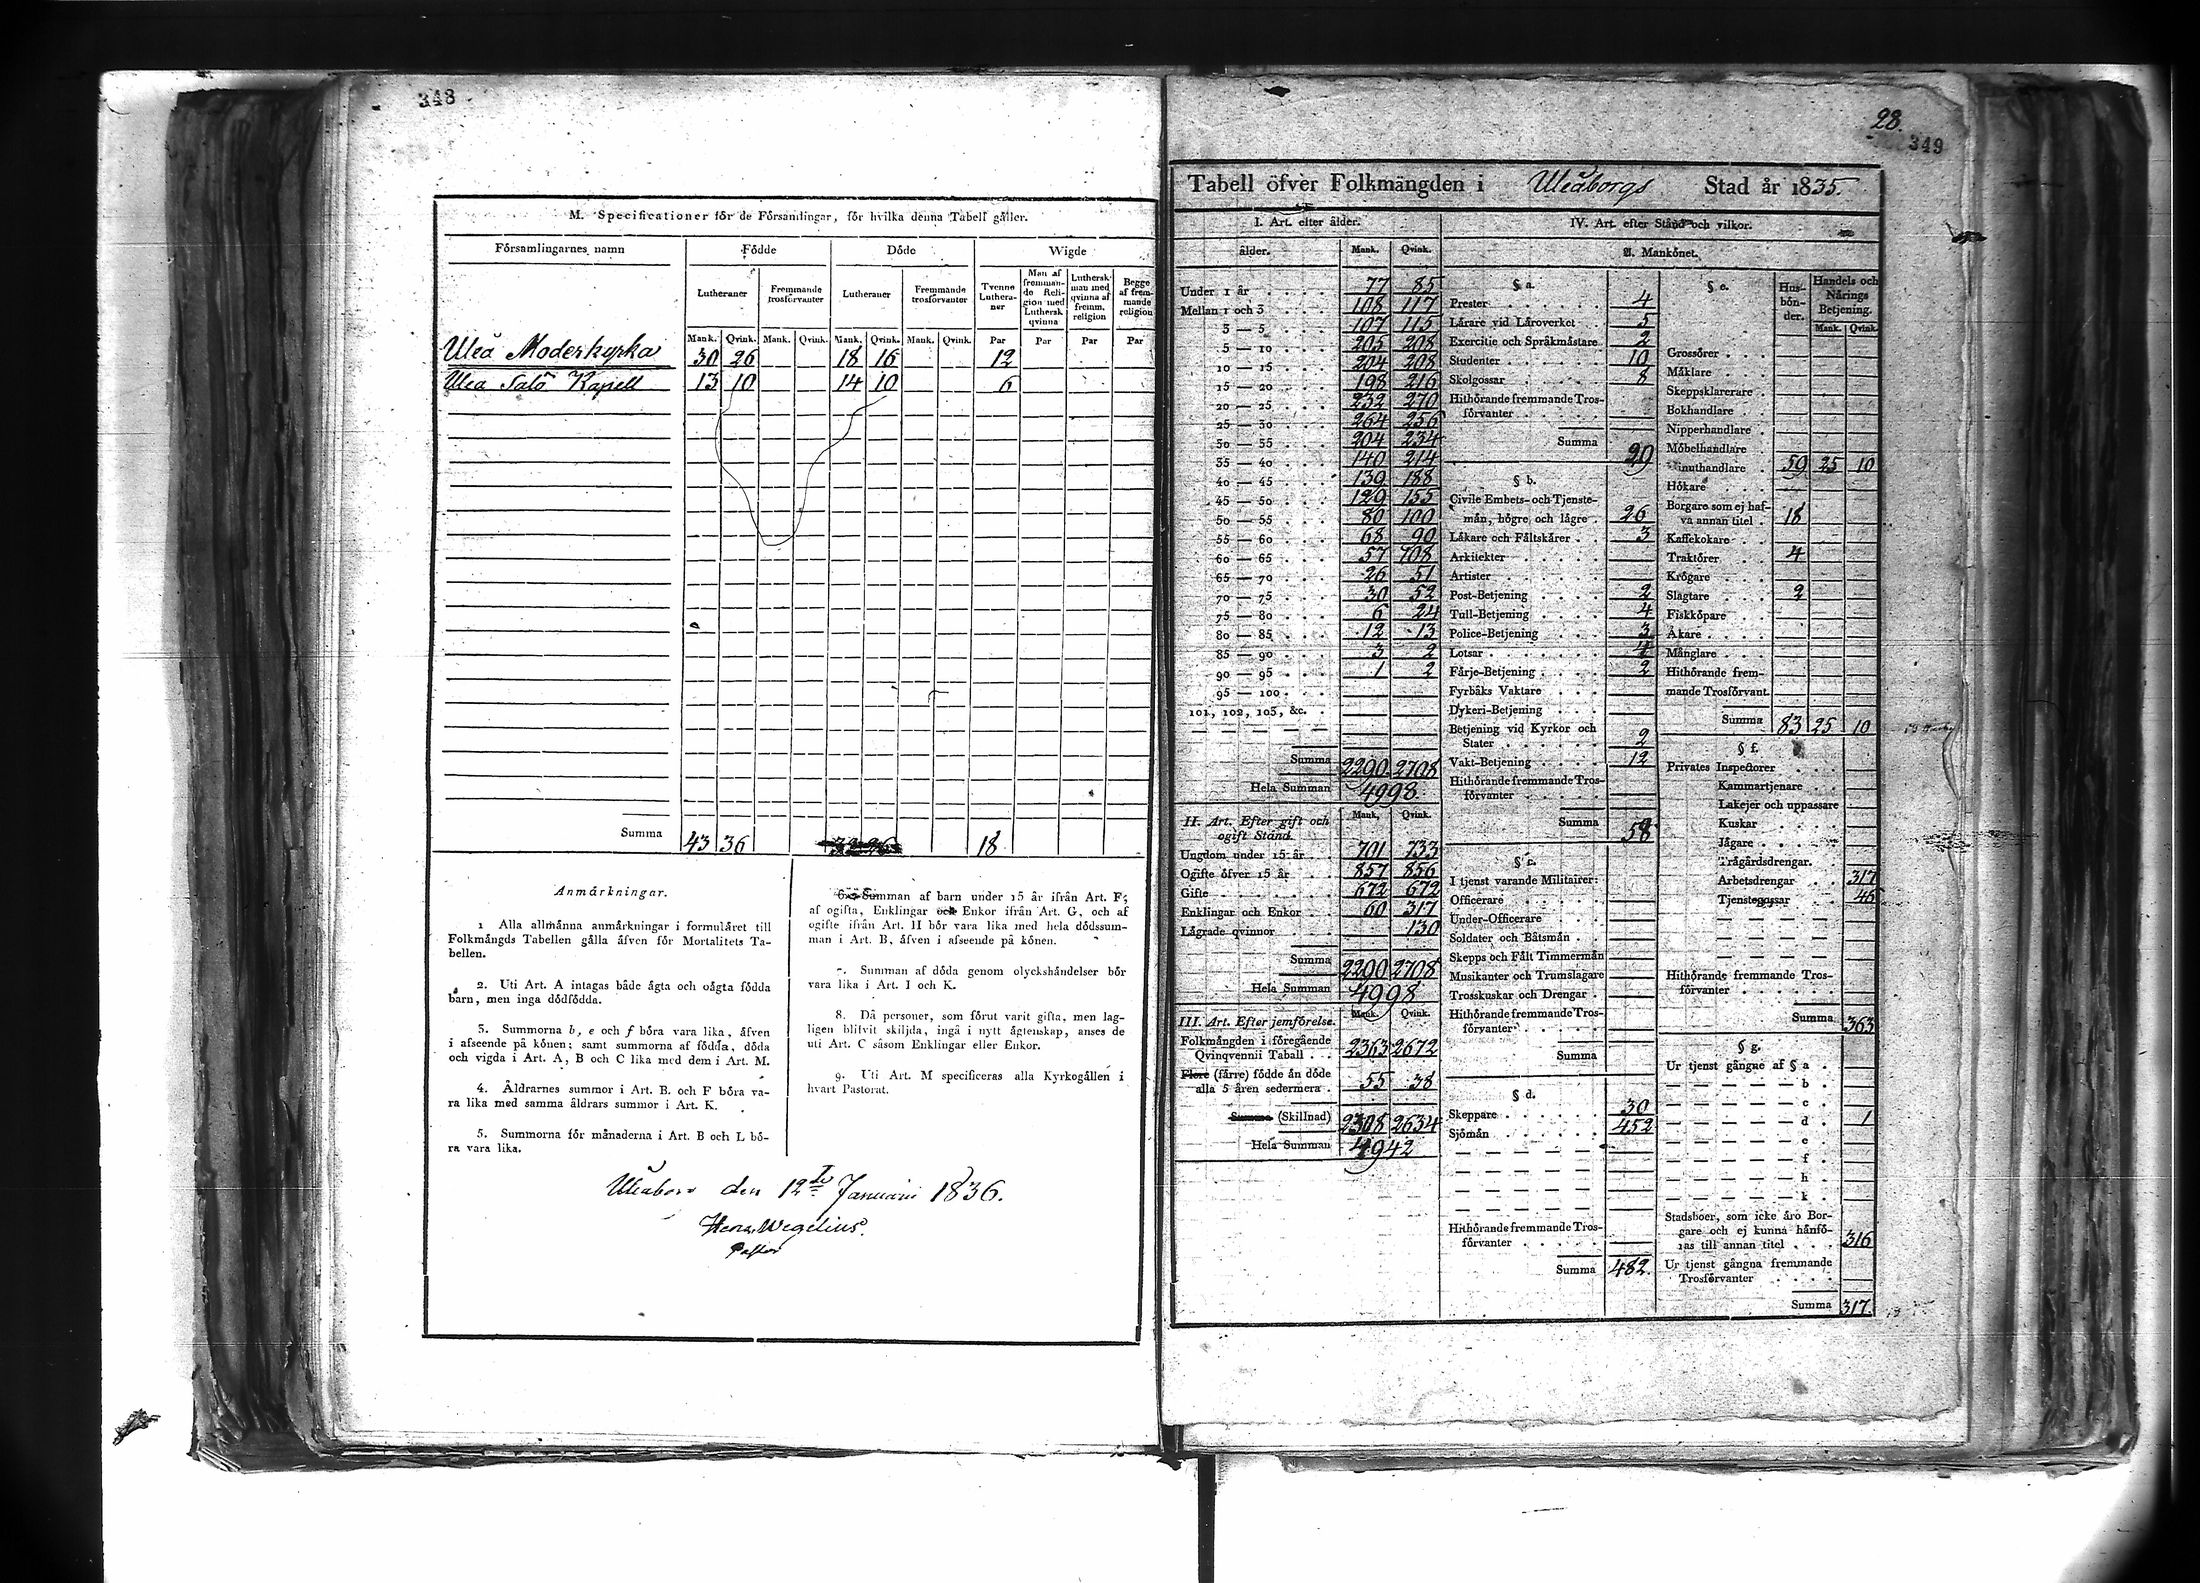 348
M. Specificationer för de Församlingar, för hvilka denna Tabell gäller.
Församlingarnes namn Födde Döde Wigde
Lutheraner Fremmande trosförvanter Lutheraner Fremmande trosförvanter Tvenne Lutheraner Man af fremmande Religion med Luthersk qvinna Luthersk man med qvinna af fremm. religion Begge af fremmande religion
Mank. Qvink. Mank. Qvink. Mank. Qvink. Mank. Qvink. Par Par Par Par
Uleå Moderkyrka 30 26 18 16 12
Ulea Salo Kapell 13 10 14 10 6
Summa 43 36 18
Anmärkningar.
1 Alla allmänna anmärkningar i formuläret till
Folkmängds Tabellen gälla äfven för Mortalitets Ta-
bellen.
2. Uti Art. A intagas både ägta och oägta födda
barn, men inga dödfödda.
3. Summorna b, e och f böra vara lika, äfven
i afseende på könen; samt summorna af födda, döda
och vigda i Art. A, B och C lika med dem i Art. M.
4. Åldrarnes summor i Art. B. och F böra va-
ra lika med samma åldrars summor i Art. K.
5. Summorna för månaderna i Art. B och L bö-
ra vara lika.
6. Summan af barn under 15 år ifrån Art. F;
af ogifta, Enklingar och Enkor ifrån Art. G, och af
ogifte ifrån Art. H bör vara lika med hela dödssum-
man i Art. B, äfven i afseende på könen.
7. Summan af döda genom olyckshändelser bör
vara lika i Art. I och K.
8. Då personer, som förut varit gifta, men lag-
ligen blifvit skiljda, ingå i nytt ägtenskap, anses de
uti Art. C såsom Enklingar eller Enkor.
9. Uti Art. M specificeras alla Kyrkogällen i
hvart Pastorat.
Uleåborg den 12te Januarii 1836.
Henr. Wegelius.
Pastor
28.
349
Tabell öfver Folkmängden i Uleåborgs Stad år 1835.
I. Art. efter ålder.
ålder. Mank. Qvink.
Under 1 år 77 85
Mellan 1 och 3 108 117
3 — 5 107 115
5 — 10 205 208
10 — 15 204 208
15 — 20 198 216
20 — 25 232 270
25 — 30 264 256
30 — 35 204 234
35 — 40 140 214
40 — 45 139 188
45 — 50 129 155
50 — 55 80 100
55 — 60 68 90
60 — 65 57 108
65 — 70 26 51
70 — 75 30 52
75 — 80 6 24
80 — 85 12 13
85 — 90 3 2
90 — 95 1 2
95 — 100
101, 102, 103, &c.
Summa 2290 2708
Hela Summan 4998
II. Art. Efter gift och ogift Stånd. Mank. Qvink.
Ungdom under 15 år 701 733
Ogifte öfver 15 år 857 856
Gifte 672 672
Enklingar och Enkor 60 317
Lägrade qvinnor 130
Summa 2290 2708
Hela Summan 4998
III. Art. Efter jemförelse. Mank. Qvink.
Folkmängden i föregående
Qvinqvennii Taball 2363 2672
Flere (färre) födde än döde
alla 5 åren sedermera 55 38
Summa (Skillnad) 2308 2634
Hela Summan 4942
IV. Art. efter Stånd och vilkor.
A. Mankönet.
§ a.
Prester 4
Lärare vid Läroverket 5
Exercitie och Språkmästare 2
Studenter 10
Skolgossar 8
Hithörande fremmande Tros-
förvanter
Summa 29
§ b.
Civile Embets- och Tjenste-
män, högre och lägre 26
Läkare och Fältskärer 3
Arkitekter
Artister
Post-Betjening 2
Tull-Betjening 4
Police-Betjening 3
Lotsar 4
Färje-Betjening 2
Fyrbåks Vaktare
Dykeri-Betjening
Betjening vid Kyrkor och
Stater 2
Vakt-Betjening 12
Hithörande fremmande Tros-
förvanter
Summa 58
§ c.
I tjenst varande Militairer:
Officerare
Under-Officerare
Soldater och Båtsmän
Skepps och Fält Timmermän
Musikanter och Trumslagare
Trosskuskar och Drengar
Hithörande fremmande Tros-
förvanter
Summa
§ d.
Skeppare 30
Sjömän 452
Hithörande fremmande Tros-
förvanter
Summa 482
§ e. Husbönder. Handels och Närings Betjening.
Mank. Qvink.
Grossörer
Mäklare
Skeppsklarerare
Bokhandlare
Nipperhandlare
Möbelhandlare
Minuthandlare 59 25 10
Hökare
Borgare som ej haf-
va annan titel 18
Kaffekokare
Traktörer 4
Krögare
Slagtare 2
Fiskköpare
Åkare
Månglare
Hithörande frem-
mande Trosförvant.
Summa 83 25 10
§ f.
Privates Inspektorer
Kammartjenare
Lakejer och uppassare
Kuskar
Jägare
Trägårdsdrengar.
Arbetsdrengar 317
Tjenstegossar 46
Hithörande fremmande Tros-
förvanter
Summa 363
§ g.
Ur tjenst gångne af § a
b
c
d 1
e
f
h
k
Stadsboer, som icke äro Bor-
gare och ej kunna hänfö-
ras till annan titel 316
Ur tjenst gångna fremmande
Trosförvanter
Summa 317.